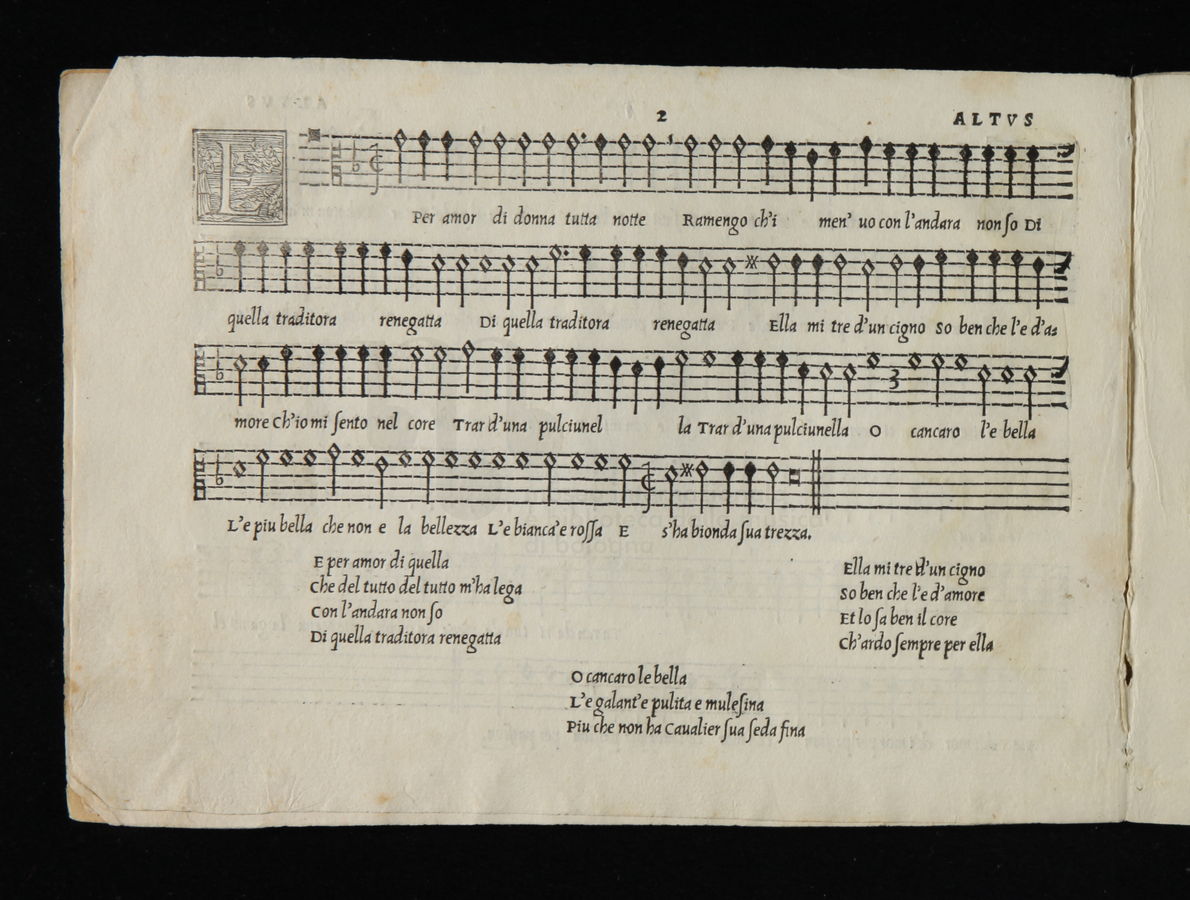 2
ALTVS
E Per amor di donna tutta notte Ramengo ch'i men' uo con l'andara non ſo Di
quella traditora renegatta Di quella traditora renegatta Ella mi tre d'un cigno So ben che l'e d'a=
more Ch'io mi ſento nel core Trar d'una pulciunel la Trar d'una pulciunella O cancaro l'e bella
L'e piu bella che non e la bellezza L'e bianca'e roſſa E s'ha bionda ſua trezza.
E per amor di quella
Che del tutto del tutto m'ha lega
Con l'andara non ſo
Di quella traditora renegatta
Ella mi tre d'un cigno
So ben che l'e d'amore
Et lo ſa ben il core
Ch'ardo ſempre per ella
O cancaro le bella
L'e galant'e pulita e muleſina
Piu che non ha Caualier ſua ſeda fina